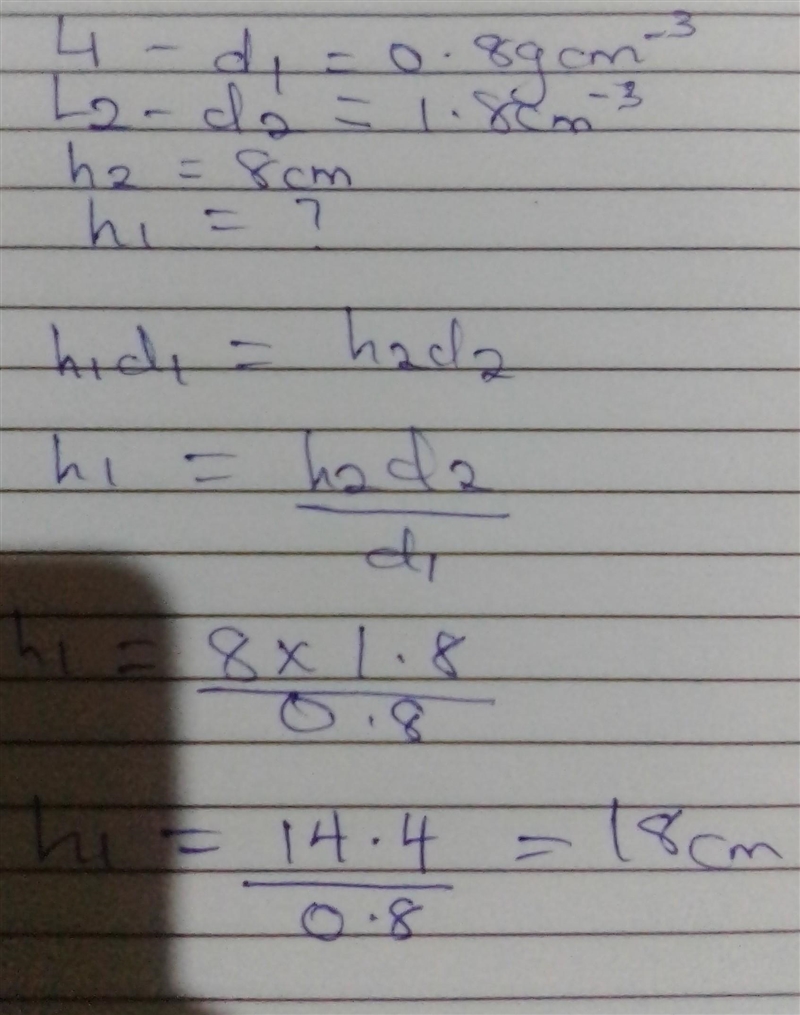 L1 - d₁ = 0.8gcm⁻³
L2 - d₂ = 1.8cm⁻³
h₂ = 8cm
h₁ = ?
h₁d₁ = h₂d₂
h₁ = h₂d₂
d₁
h₁ = 8 x 1.8
0.8
h₁ = 14.4 = 18cm
0.8